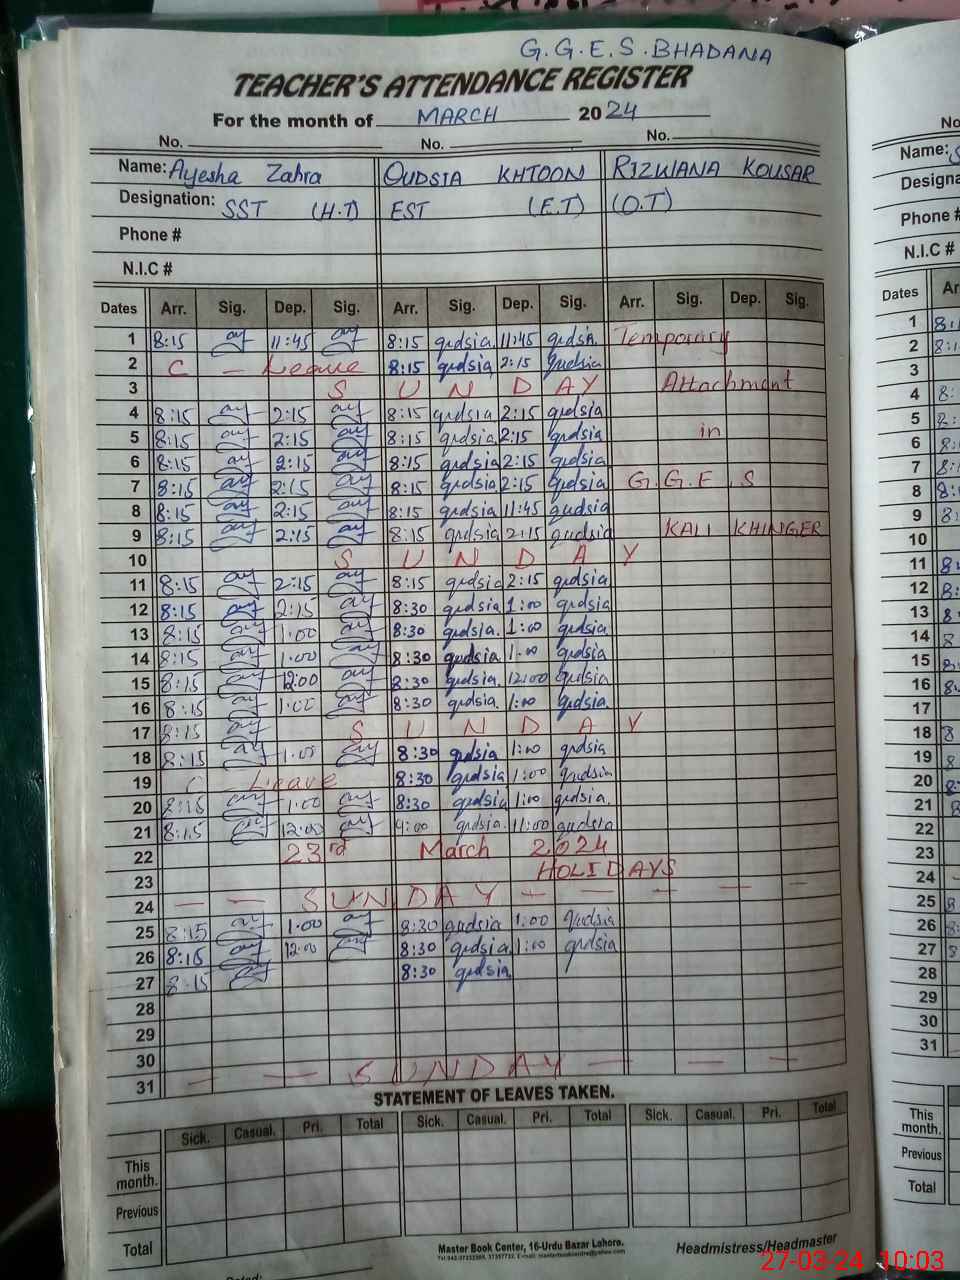 G.G.E.S.BHADANA
TEACHER'S ATTENDANCE REGISTER
For the month of MARCH 2024
No. No. No.
Name: Ayesha Zahra QUDSIA KHTOON RIZWANA KOUSAR
Designation: SST (H.T) EST (E.T) (O.T)
Phone #
N.I.C #
Dates Arr. Sig. Dep. Sig. Arr. Sig. Dep. Sig. Arr. Sig. Dep. Sig.
1 8:15 ay 11:45 ay 8:15 qudsia 11:45 qudsia Temporary
2 C - Leave 8:15 qudsia 2:15 qudsia
3 S U N D A Y Attachment
4 8:15 ay 2:15 ay 8:15 qudsia 2:15 qudsia
5 8:15 ay 2:15 ay 8:15 qudsia 2:15 qudsia in
6 8:15 ay 2:15 ay 8:15 qudsia 2:15 qudsia
7 8:15 ay 2:15 ay 8:15 qudsia 2:15 qudsia G.G.E.S
8 8:15 ay 2:15 ay 8:15 qudsia 11:45 qudsia
9 8:15 ay 2:15 ay 8:15 qudsia 2:15 qudsia KALI KHINGER
10 S U N D A Y
11 8:15 ay 2:15 ay 8:15 qudsia 2:15 qudsia
12 8:15 ay 2:15 ay 8:30 qudsia 1:00 qudsia
13 8:15 ay 1:00 ay 8:30 qudsia. 1:00 qudsia
14 8:15 ay 1:00 ay 8:30 qudsia 1:00 qudsia
15 8:15 ay 12:00 ay 8:30 qudsia. 12:00 qudsia
16 8:15 ay 1:00 ay 8:30 qudsia. 1:00 qudsia
17 8:15 ay S U N D A Y
18 8:15 ay 1:00 ay 8:30 qudsia 1:00 qudsia
19 C Leave 8:30 qudsia 1:00 qudsia
20 8:15 ay 1:00 ay 8:30 qudsia 1:00 qudsia.
21 8:15 ay 12:00 ay 9:00 qudsia. 11:00 qudsia
22 23rd March 2024
23 HOLIDAYS
24 - - SUNDAY - - - - -
25 8:15 ay 1:00 ay 8:30 qudsia 1:00 qudsia
26 8:15 ay 12:00 ay 8:30 qudsia 1:00 qudsia
27 8:15 ay 8:30 qudsia
28
29
30
31 - - SUNDAY - - -
STATEMENT OF LEAVES TAKEN.
Sick. Casual. Pri. Total Sick. Casual. Pri. Total Sick. Casual. Pri. Total
This month.
Previous
Total
Master Book Center, 16-Urdu Bazar Lahore.
Headmistress/Headmaster
Dated:
27-03-24 10:03
No
Name:
Designa
Phone #
N.I.C #
Dates Ar
1
2
3
4
5
6
7
8
9
10
11
12
13
14
15
16
17
18
19
20
21
22
23
24
25
26
27
28
29
30
31
This month.
Previous
Total